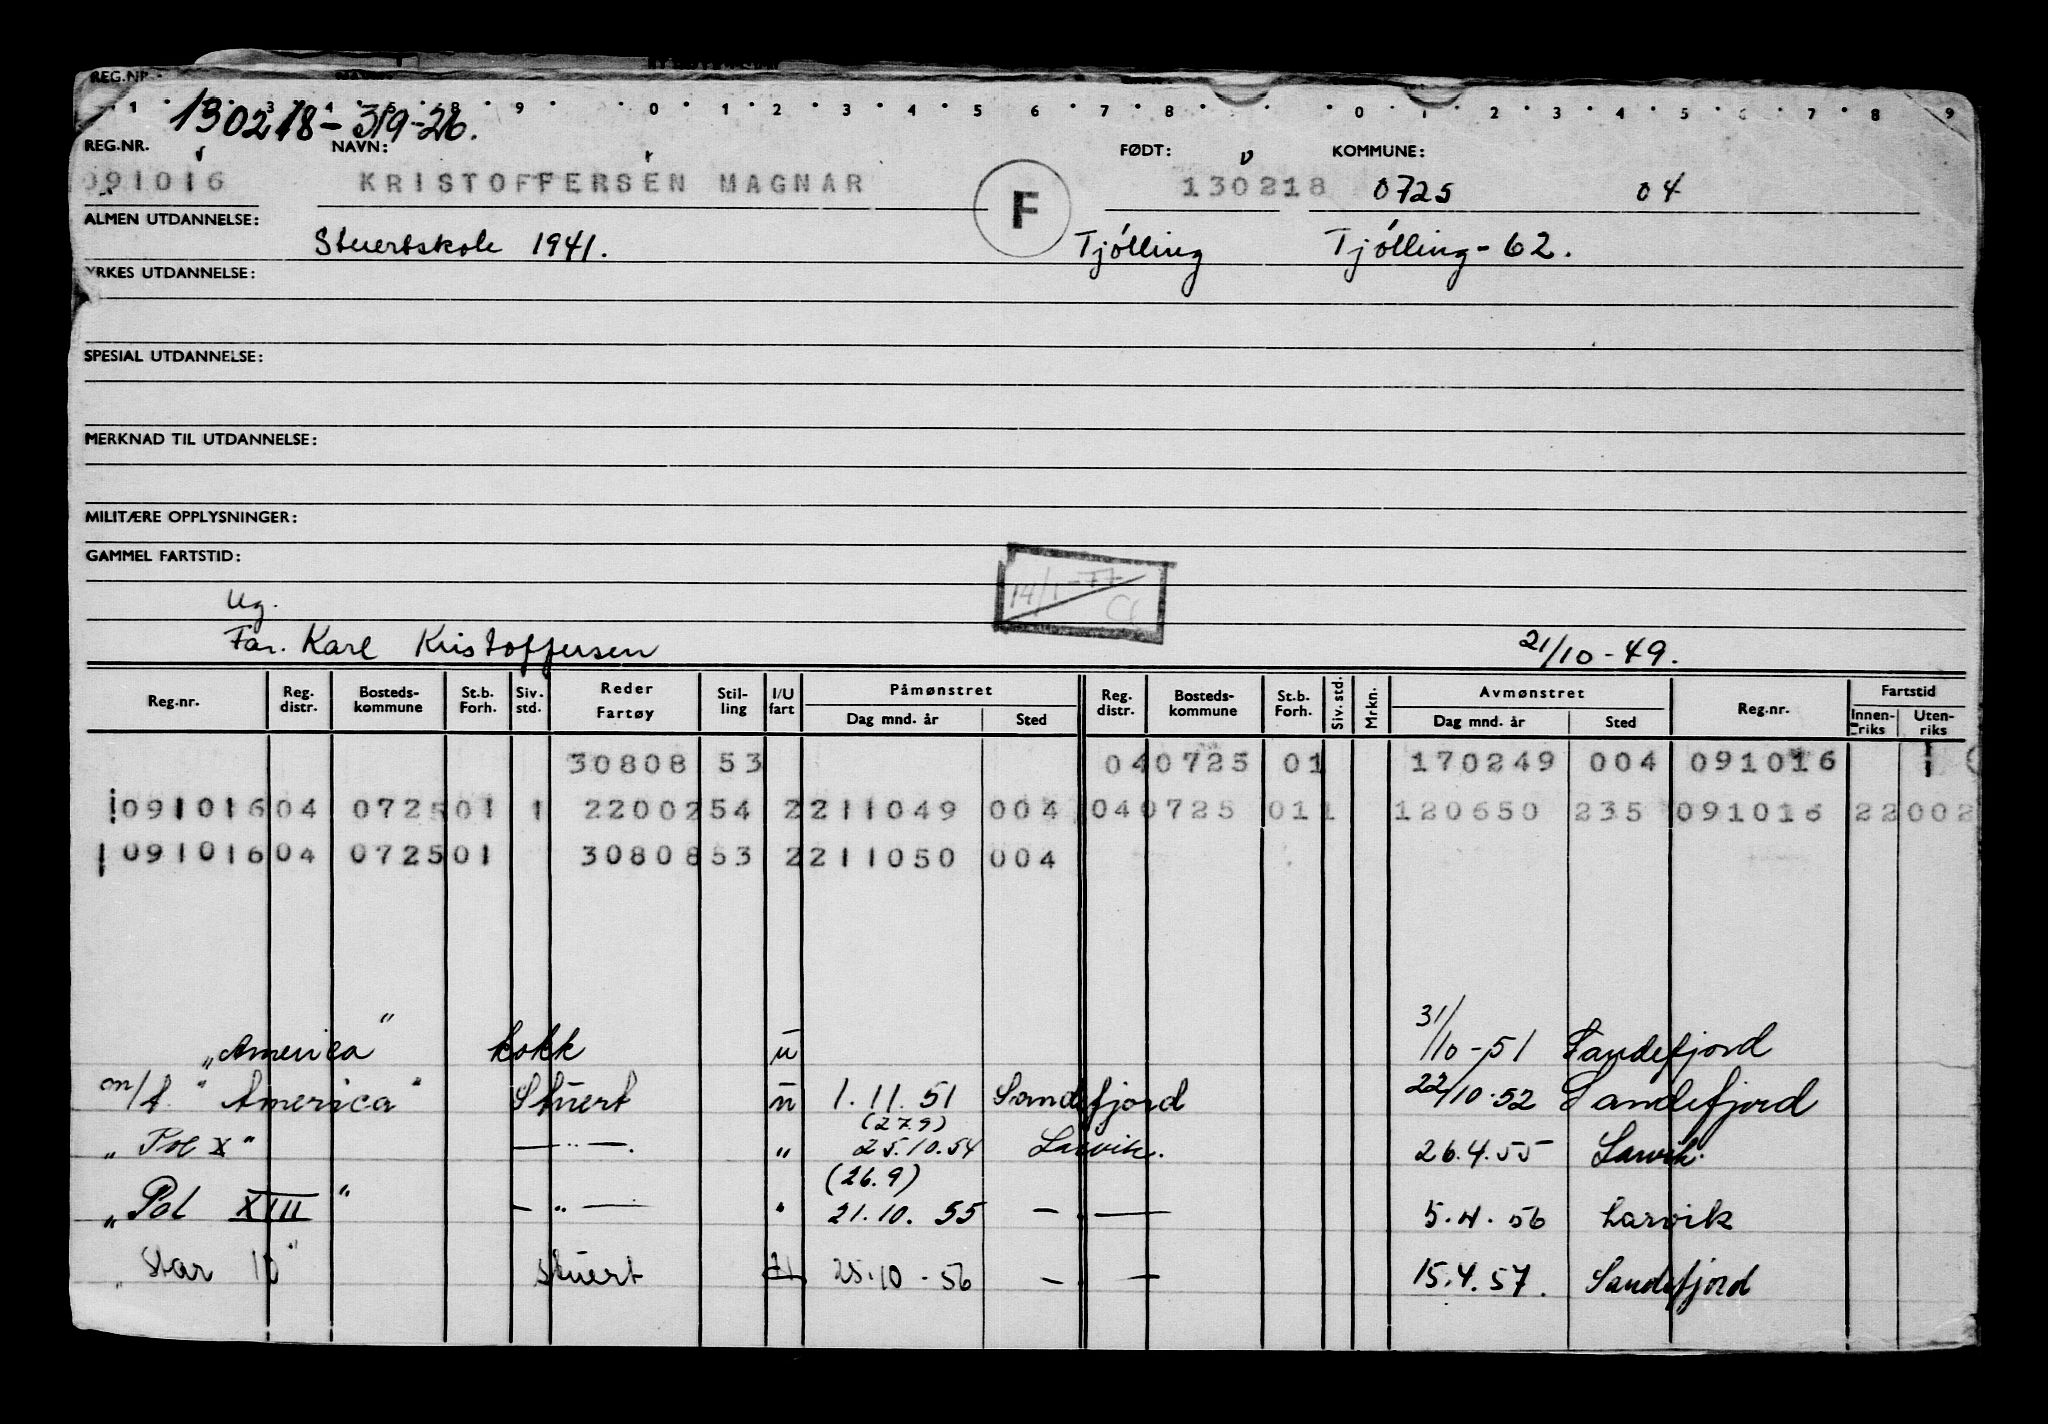 REG.NR.
1 3 4 5 8 9 0 1 2 3 4 5 6 7 8 0 1 2 3 4 5 6 7 8 9
130218-319-26.
REG.NR. NAVN: FØDT: KOMMUNE:
091016 KRISTOFFERSEN MAGNAR F 130218 0725 04
ALMEN UTDANNELSE: Stuertskole 1941. Tjølling Tjølling-62.
YRKES UTDANNELSE:
SPESIAL UTDANNELSE:
MERKNAD TIL UTDANNELSE:
MILITÆRE OPPLYSNINGER:
GAMMEL FARTSTID:
14/1-77
Ug.
Far. Karl Kristoffersen 21/10-49.
Reg.nr. Reg. distr. Bosteds- kommune St.b. Forh. Siv. std. Reder Fartøy Stil- ling I/U fart Påmønstret Dag mnd. år Sted Reg. distr. Bosteds- kommune St.b. Forh. Siv. std. Mrkn. Avmønstret Dag mnd. år Sted Reg.nr. Fartstid Innen- riks Uten- riks
30808 53 04 0725 01 170249 004 091016 1
091016 04 0725 01 1 22002 54 2 211049 004 04 0725 01 1 120650 235 091016 22002
091016 04 0725 01 30808 53 2 211050 004
"America" kokk u 31/10-51 Sandefjord
m/t. "America" Stuert u 1.11.51 Sandefjord 22/10.52 Sandefjord
(27.9)
"Pol X" — " — . " 25.10.54 Larvik. 26.4.55 Larvik.
(26.9)
"Pol XIII" — " — " 21.10.55 — " — 5.4.56 Larvik
"Star 10" Stuert u 25.10-56 — " — 15.4.57. Sandefjord